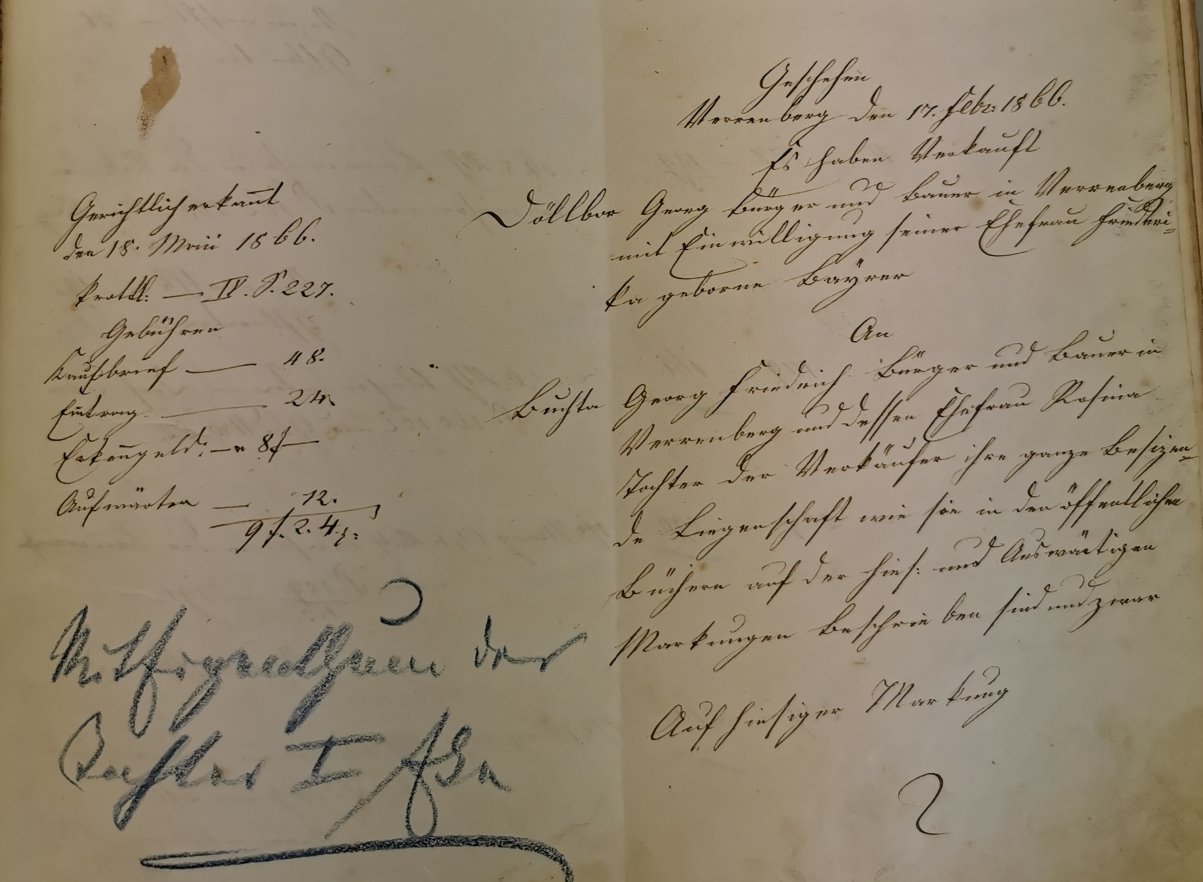 Gerichtlich erkannt
den 18. Mai 1866.
Prottk. — IV. S. 227.
Gebühren
Kaufbrief — 48.
Eintrag. — 24
Erkenngeld: — 8 f —
Aufwärter — 12.
9 f. 2. 4
Miteigenthum der
Tochter I
Geschehen
Verrenberg den 17. Febr. 1866.
Es haben Verkauft
Döllbor Georg Bürger und Bauer in Verrenberg
mit Einwilligung seiner Ehefrau Friederi=
ka geborne Bayrer
An
Buchta Georg Friedrich Bürger und Bauer in
Verrenberg und dessen Ehefrau Rosina
Tochter der Verkäufer ihre ganze Besizen=
de Liegenschaft wie sie in den öffentlichen
Büchern auf der hies: und Auswärtigen
Markungen beschrieben sind und zwar
Auf hiesiger Markung